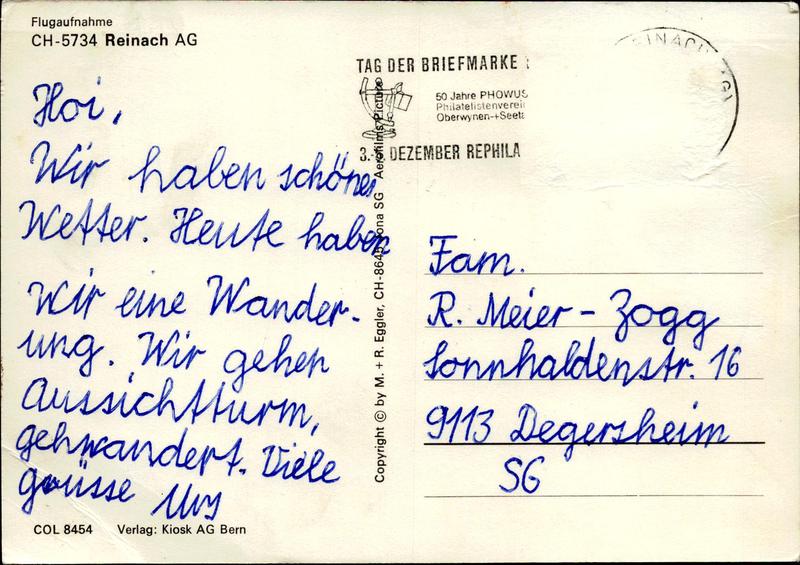 Flugaufnahme
CH-5734 Reinach AG
Hoi,
Wir haben schönes
Wetter. Heute haben
wir eine Wander-
ung. Wir gehen
Aussichtturm,
gehwandert. Viele
grüsse Urs
COL 8454 Verlag: Kiosk AG Bern
Copyright © by M. + R. Eggler, CH-8645 Jona SG Aerofilms Picture
TAG DER BRIEFMARKE
50 Jahre PHOWUS
Philatelistenverein
Oberwynen-+Seeta
DEZEMBER REPHILA
REINACH (AG)
Fam.
R. Meier - Zogg
Sonnhaldenstr. 16
9113 Degersheim
SG